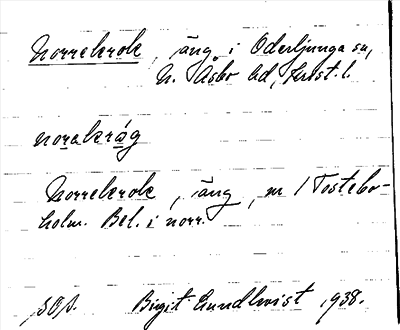 Norrekrok, äng i Oderljunga sn,
N. Åsbo hd, Krist. l.
norakråg
Norrekrok, äng, nr 1 Tostebo-
holm. Bel. i norr.
Birgit Lundkvist 1938.